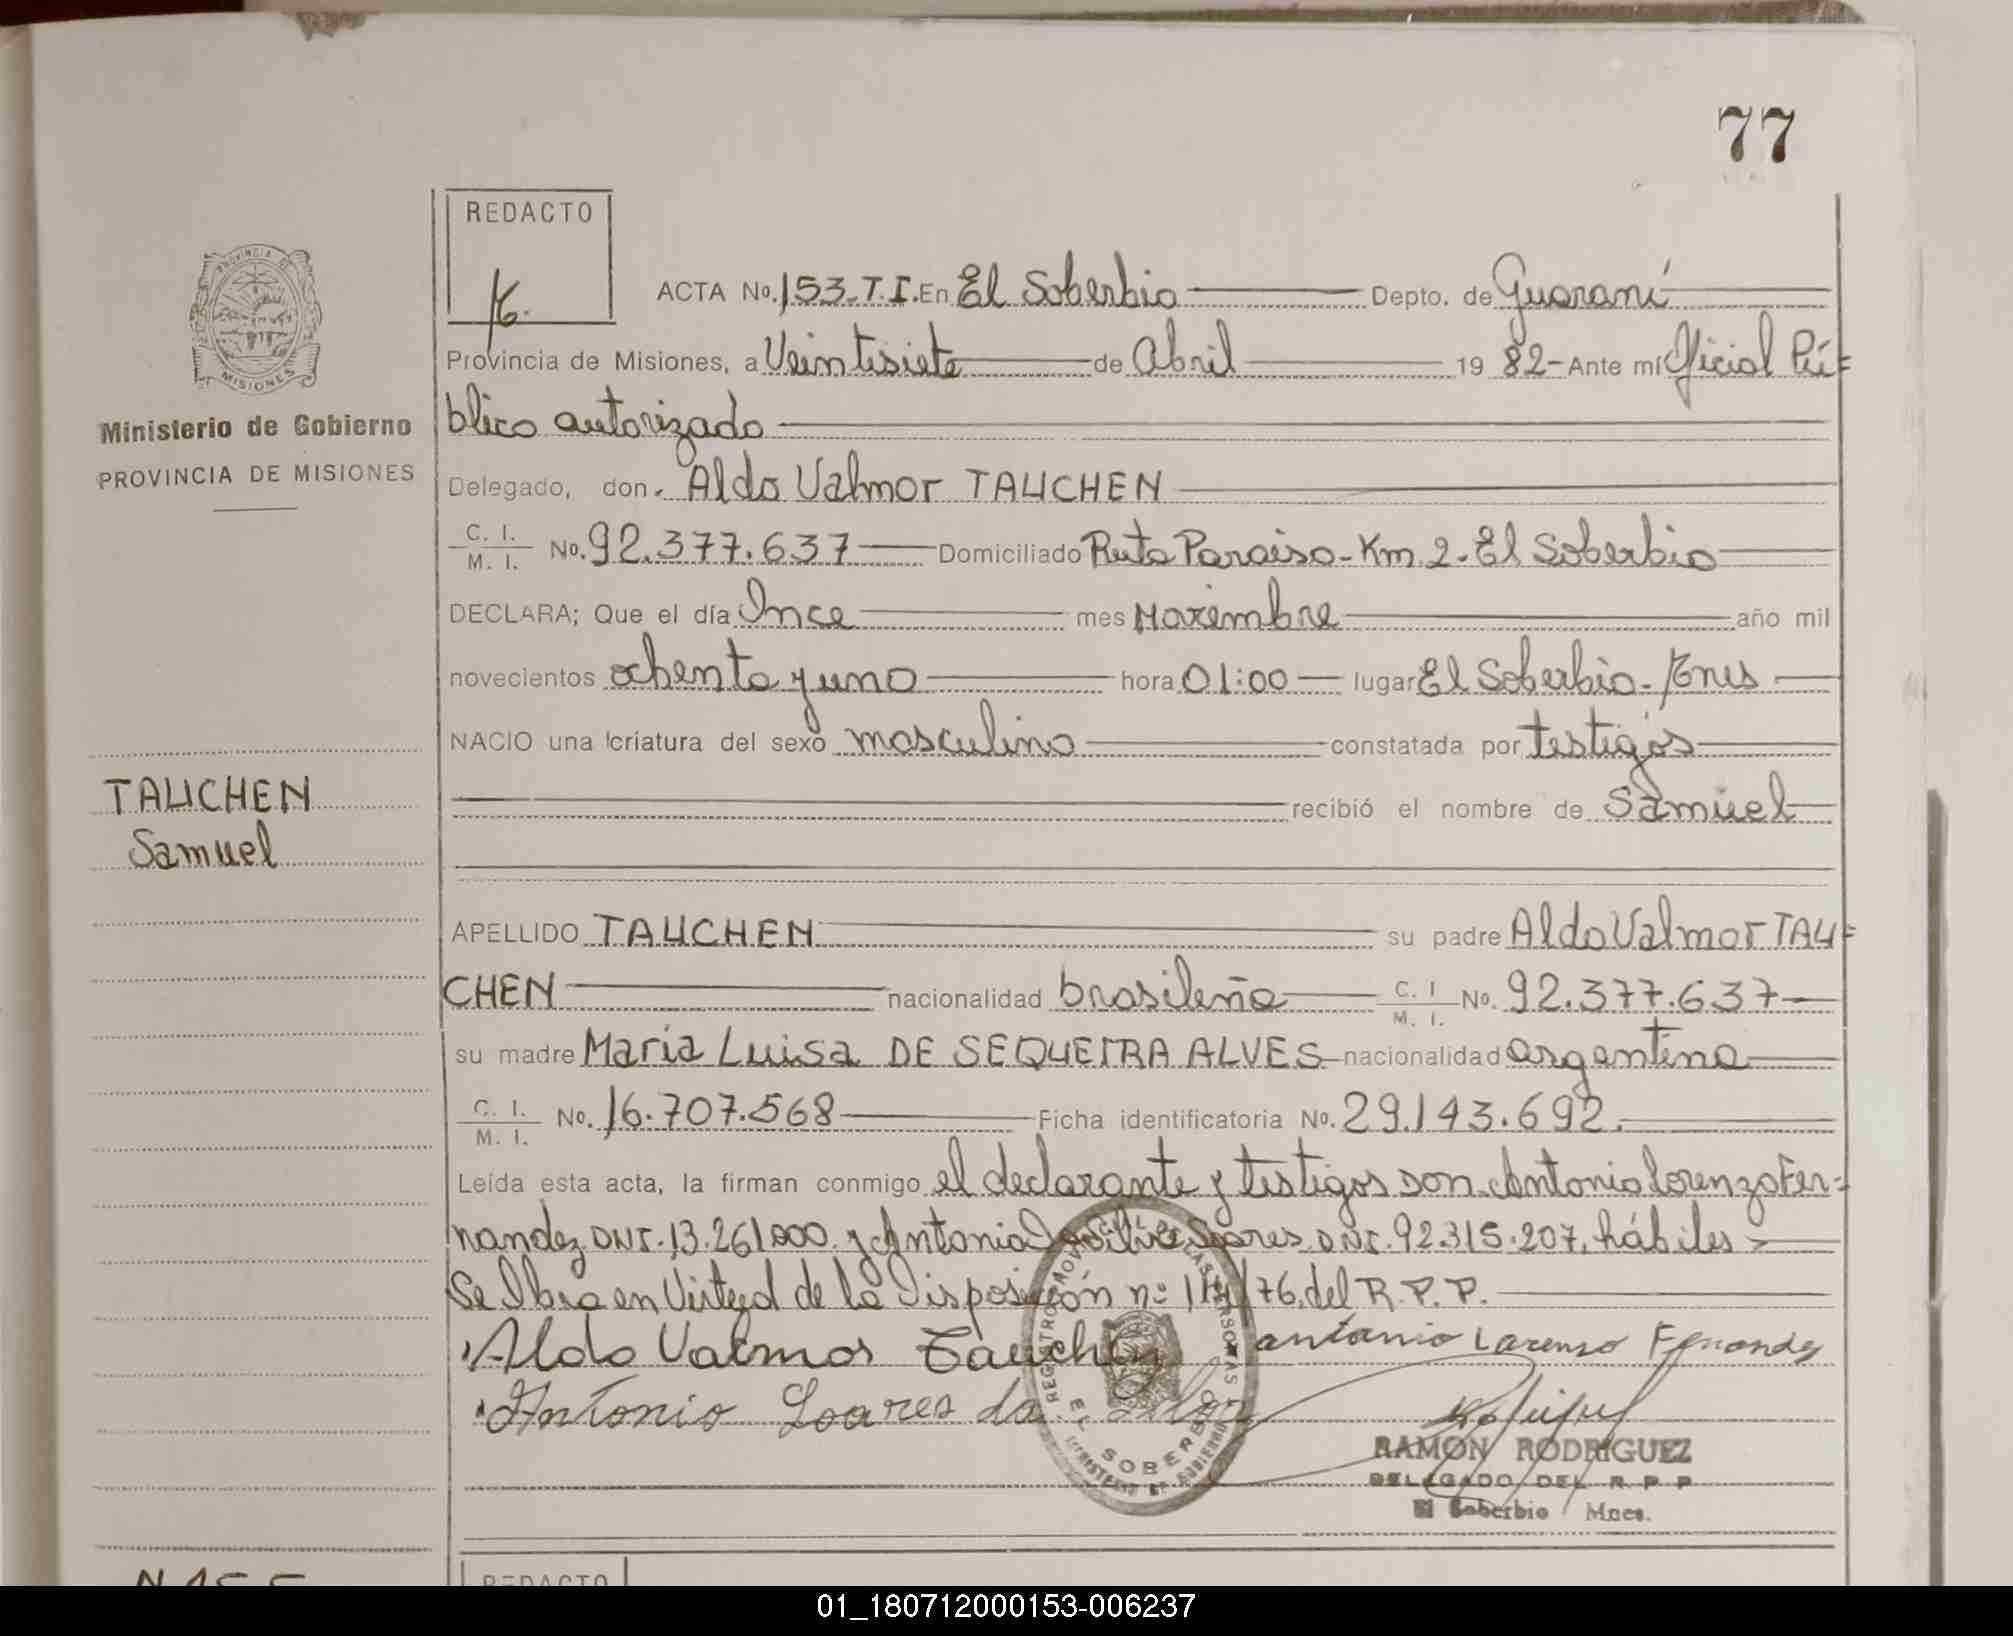 77
REDACTO
PROVINCIA DE
MISIONES
Ministerio de Gobierno
PROVINCIA DE MISIONES
ACTA No. 153-T.I. En El Soberbio Depto. de Guaraní
Provincia de Misiones, a Veintisiete de Abril 19 82- Ante mí Oficial Pú=
blico autorizado
Delegado, don. Aldo Valmor TAUCHEN
C. I. / M. I. No. 92.377.637 Domiciliado Ruta Paraiso-Km 2-El Soberbio
DECLARA; Que el día Once mes Noviembre año mil
novecientos ochenta y uno hora 01:00 lugar El Soberbio-
NACIO una criatura del sexo masculino constatada por testigos
recibió el nombre de Samuel
TAUCHEN
Samuel
APELLIDO TAUCHEN su padre Aldo Valmor TAU=
CHEN nacionalidad brasileña C. I / M. I. No. 92.377.637
su madre María Luisa DE SEQUEIRA ALVES nacionalidad argentina
C. I. / M. I. No. 16.707.568 Ficha identificatoria No. 29.143.692.
Leída esta acta, la firman conmigo el declarante y testigos son Antonio Lorenzo Fer=
nandez DNI. 13.261.000 y Antonio Da Silva Soares DNI. 92.315.207, hábiles
Se labra en Virtud de la Disposición nº /76, del R.P.P.
Aldo Valmor Tauchen Antonio Lorenzo Fernandez
Antonio Soares da Silva
REGISTRO PROVINCIAL DE LAS PERSONAS
EL SOBERBIO
MINISTERIO DE GOBIERNO
RAMON RODRIGUEZ
DELEGADO DEL R P P
El Soberbio Mnes.
REDACTO
01_180712000153-006237